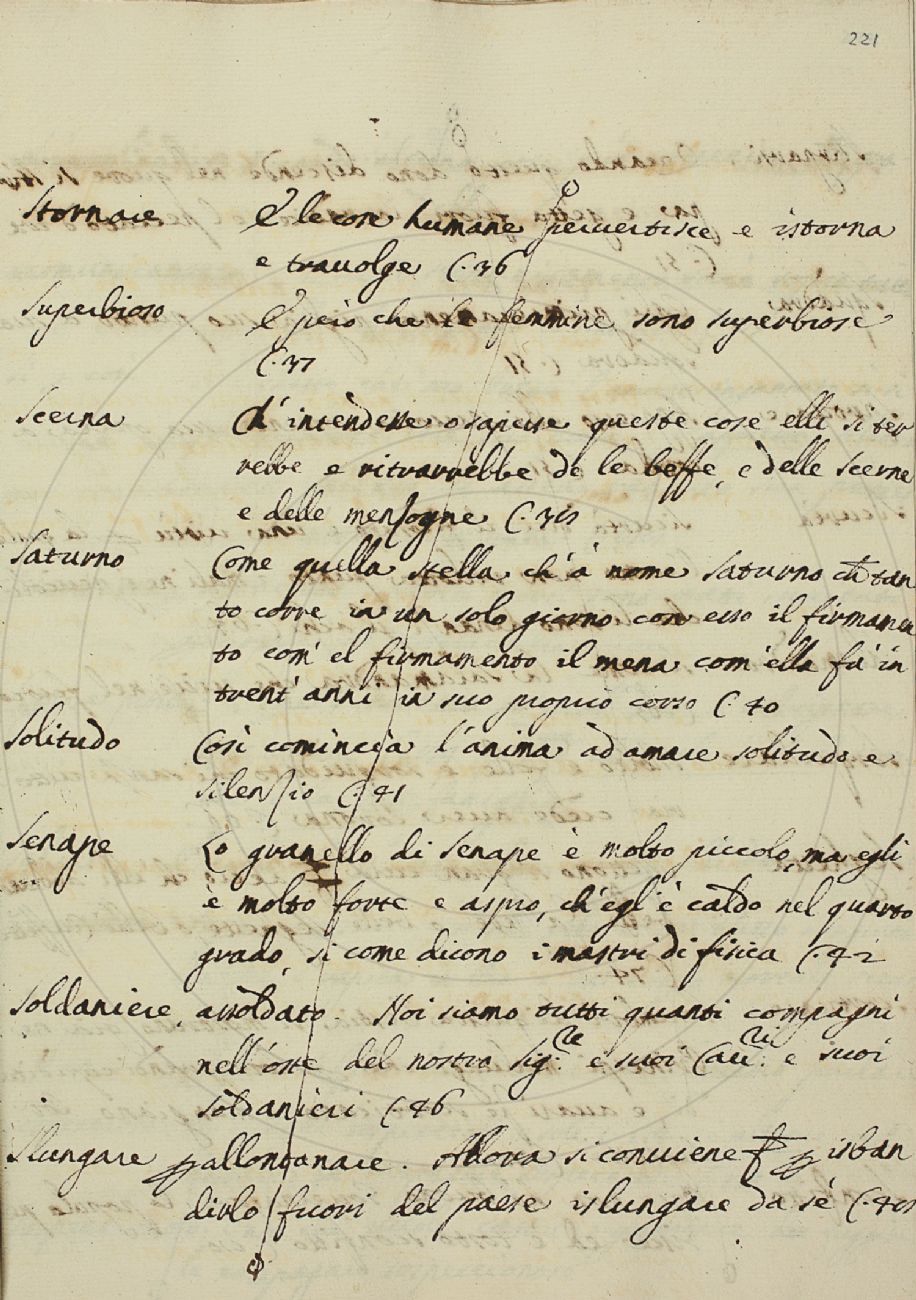 221
Stornare E le cose humane pervertisce e istorna
e travolge C. 36
Superbioso E però che le femmine sono superbiose
C. 37
Scerna Ch'intendesse o sapesse queste cose elli si ter
rebbe e ritrarrebbe de le beffe, e delle scerne
e delle mensogne C. 39
Saturno Come quella stella ch'à nome Saturno ch tan
to corre in un solo giorno con esso il firmamen
to com' el firmamento il mena com'ella fà in
trent'anni in suo proprio corso C. 40
Solitudo Così comincia l'anima ad amare solitudo e
silenzio C. 41
Senape Lo granello di senape è molto piccolo, ma egli
è molto forte e aspro, ch'egl'è caldo nel quarto
grado, si come dicono i mastri di fisica C. 42
Soldaniere, assoldato. Noi siamo tutti quanti compagni
nell'oste del nostro Sig.re e suoi Cav.ri e suoi
soldanieri C. 46
Slungare p allontanare. Allora si conviene p isban
dirlo fuori del paese islungare da sè C.